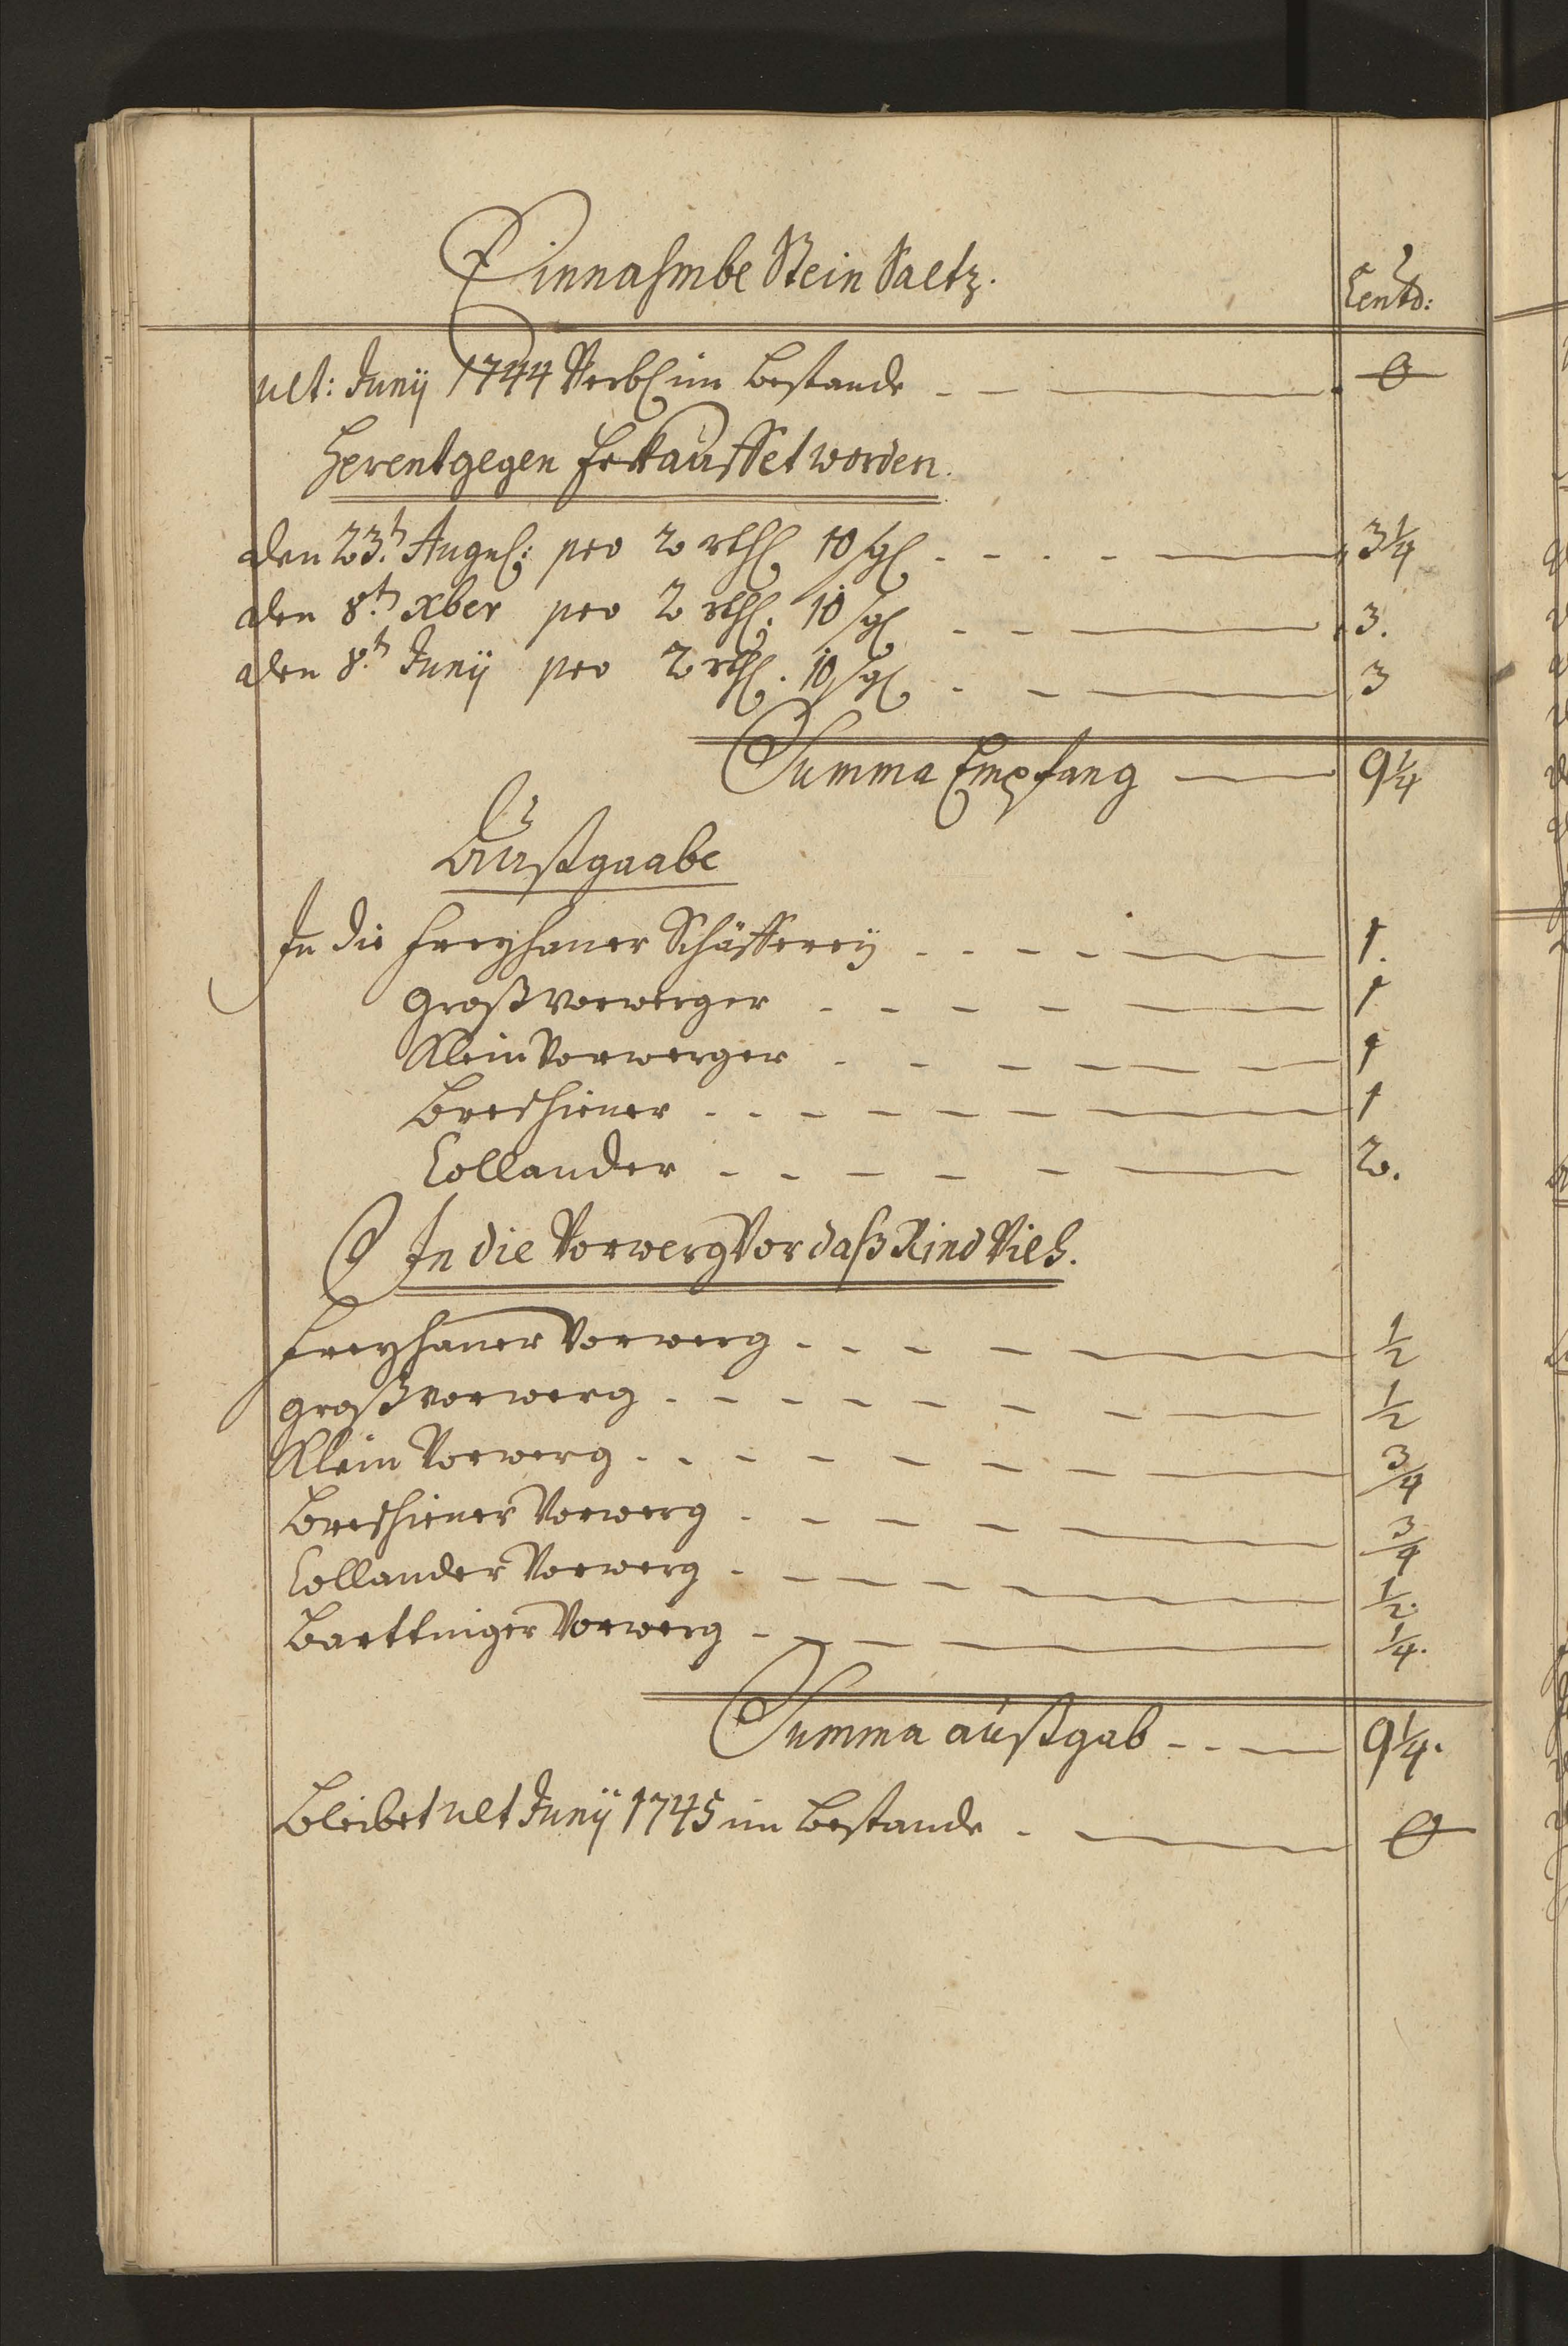 Einnahmbe Stein Saltz. Centr:
ult: Junÿ 1744 Verbl: im Bestande 0
Herentgegen Erkauffet worden.
den 23.t Augus: pro 2 rthl 10 sgl 3 1/4
den 8.t xber pro 2 rthl. 10 sgl 3.
den 8.t Junÿ pro 2 rthl. 10 sgl 3
Summa Empfang 9 1/4
Außgaabe
In die Freyhaner Schäfferey 1.
Großvorwerger 1
Klein Vorwerger 1
Breshiener 1
Collander 2.
In die Vorwerg Vor daß Rind Vieh.
Freyhaner Vorwerg 1/2
Großvorwerg 1/2
Klein Vorwerg 3/4
Breshiener Vorwerg 3/4
Collander Vorwerg 1/2.
Barttniger Vorwerg 1/4.
Summa außgab 9 1/4.
Bleibet ult Junÿ 1745 im Bestande 0